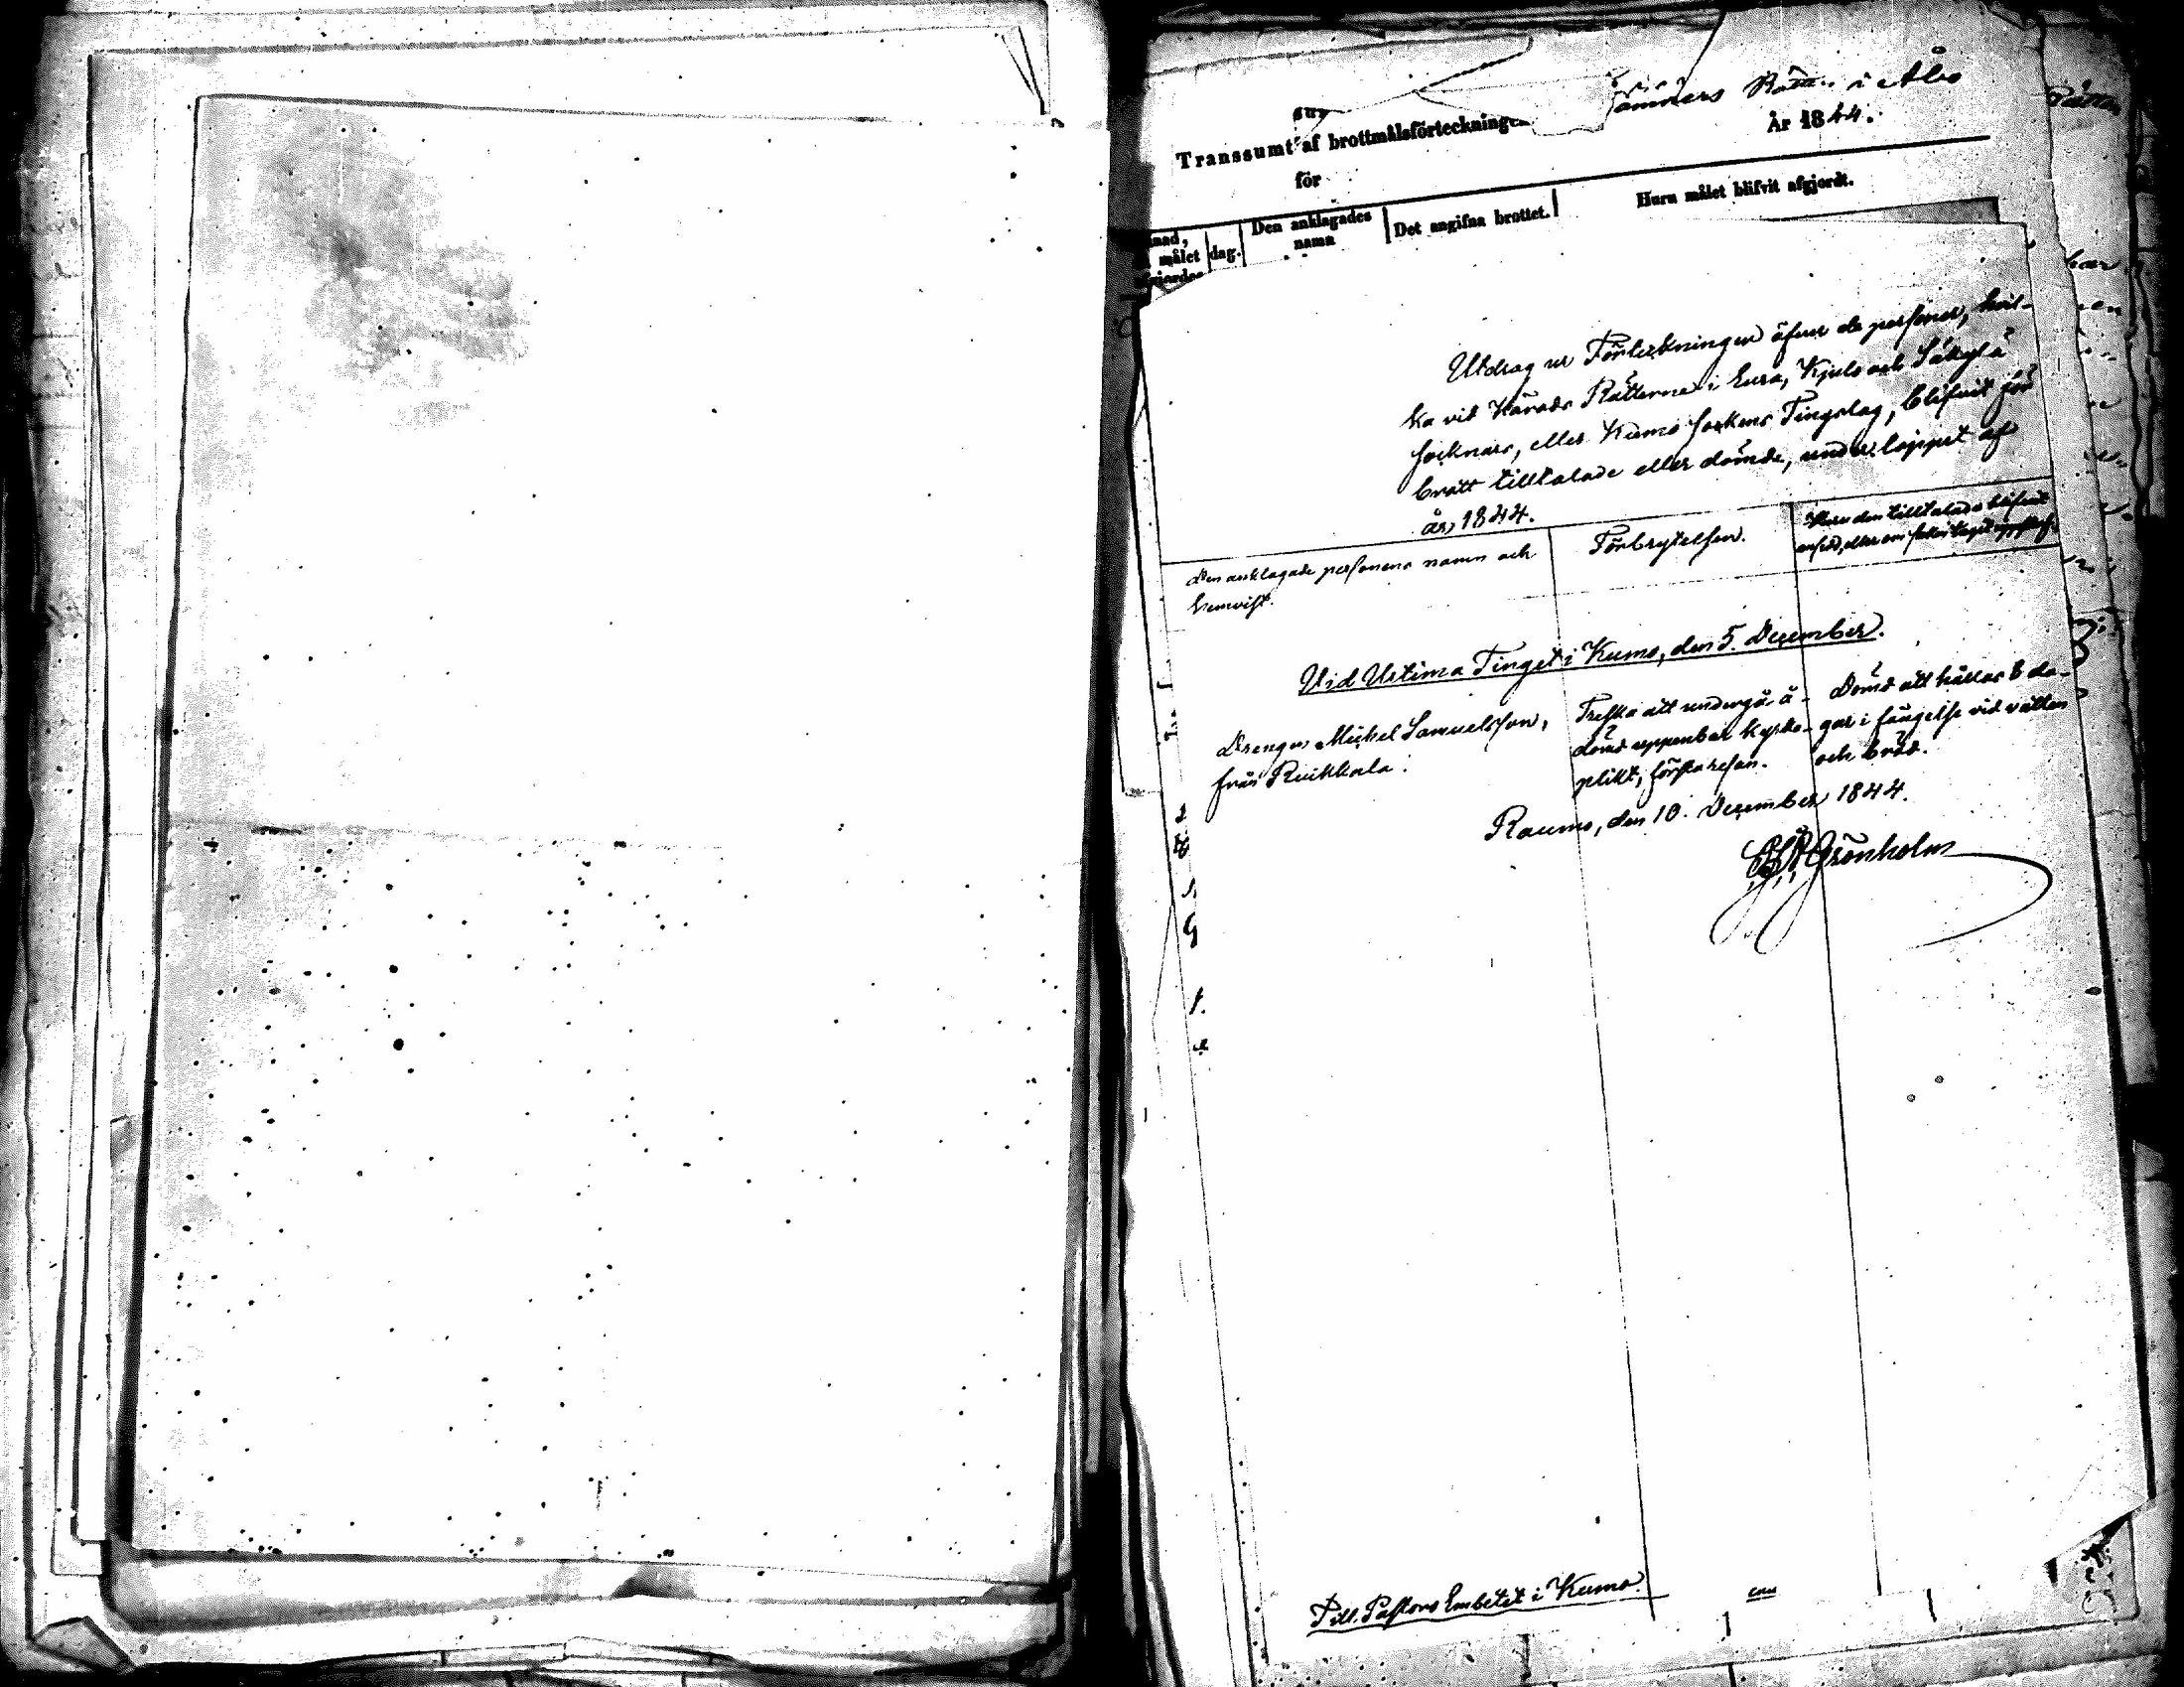 ur
Transsumt af brottmålsförteckningen
Kämners Rätten i Åbo
för
År 1844.
dag.
målet
Den anklagades
namn
Det angifna brottet.
Huru målet blifvit afgjordt.
Utdrag ur Förteckningen öfver de personer, hvil-
ka vid Härads Rätterne i Eura, Kjulo och Säkylä
socknars, eller Kumo Sockens Tingslag, blifvit för
brott tilltalade eller dömde, under loppet af
år 1844.
Den anklagade personens namn och
hemvist.
Förbrytelsen.
Huru den tilltalade blifvit
ansedd, eller om saken tagit uppskof.
Vid Urtima Tinget i Kumo, den 5. December.
Drengen Michel Samuelsson,
från Ruikkala.
Tredska att undergå å-
dömd uppenbar kyrko-
plikt, första resan.
Dömd att hållas 8 da-
gar i fängelse vid vatten
och bröd.
Raumo, den 10. December 1844.
Grönholm
Till Pastors Embetet i Kumo.